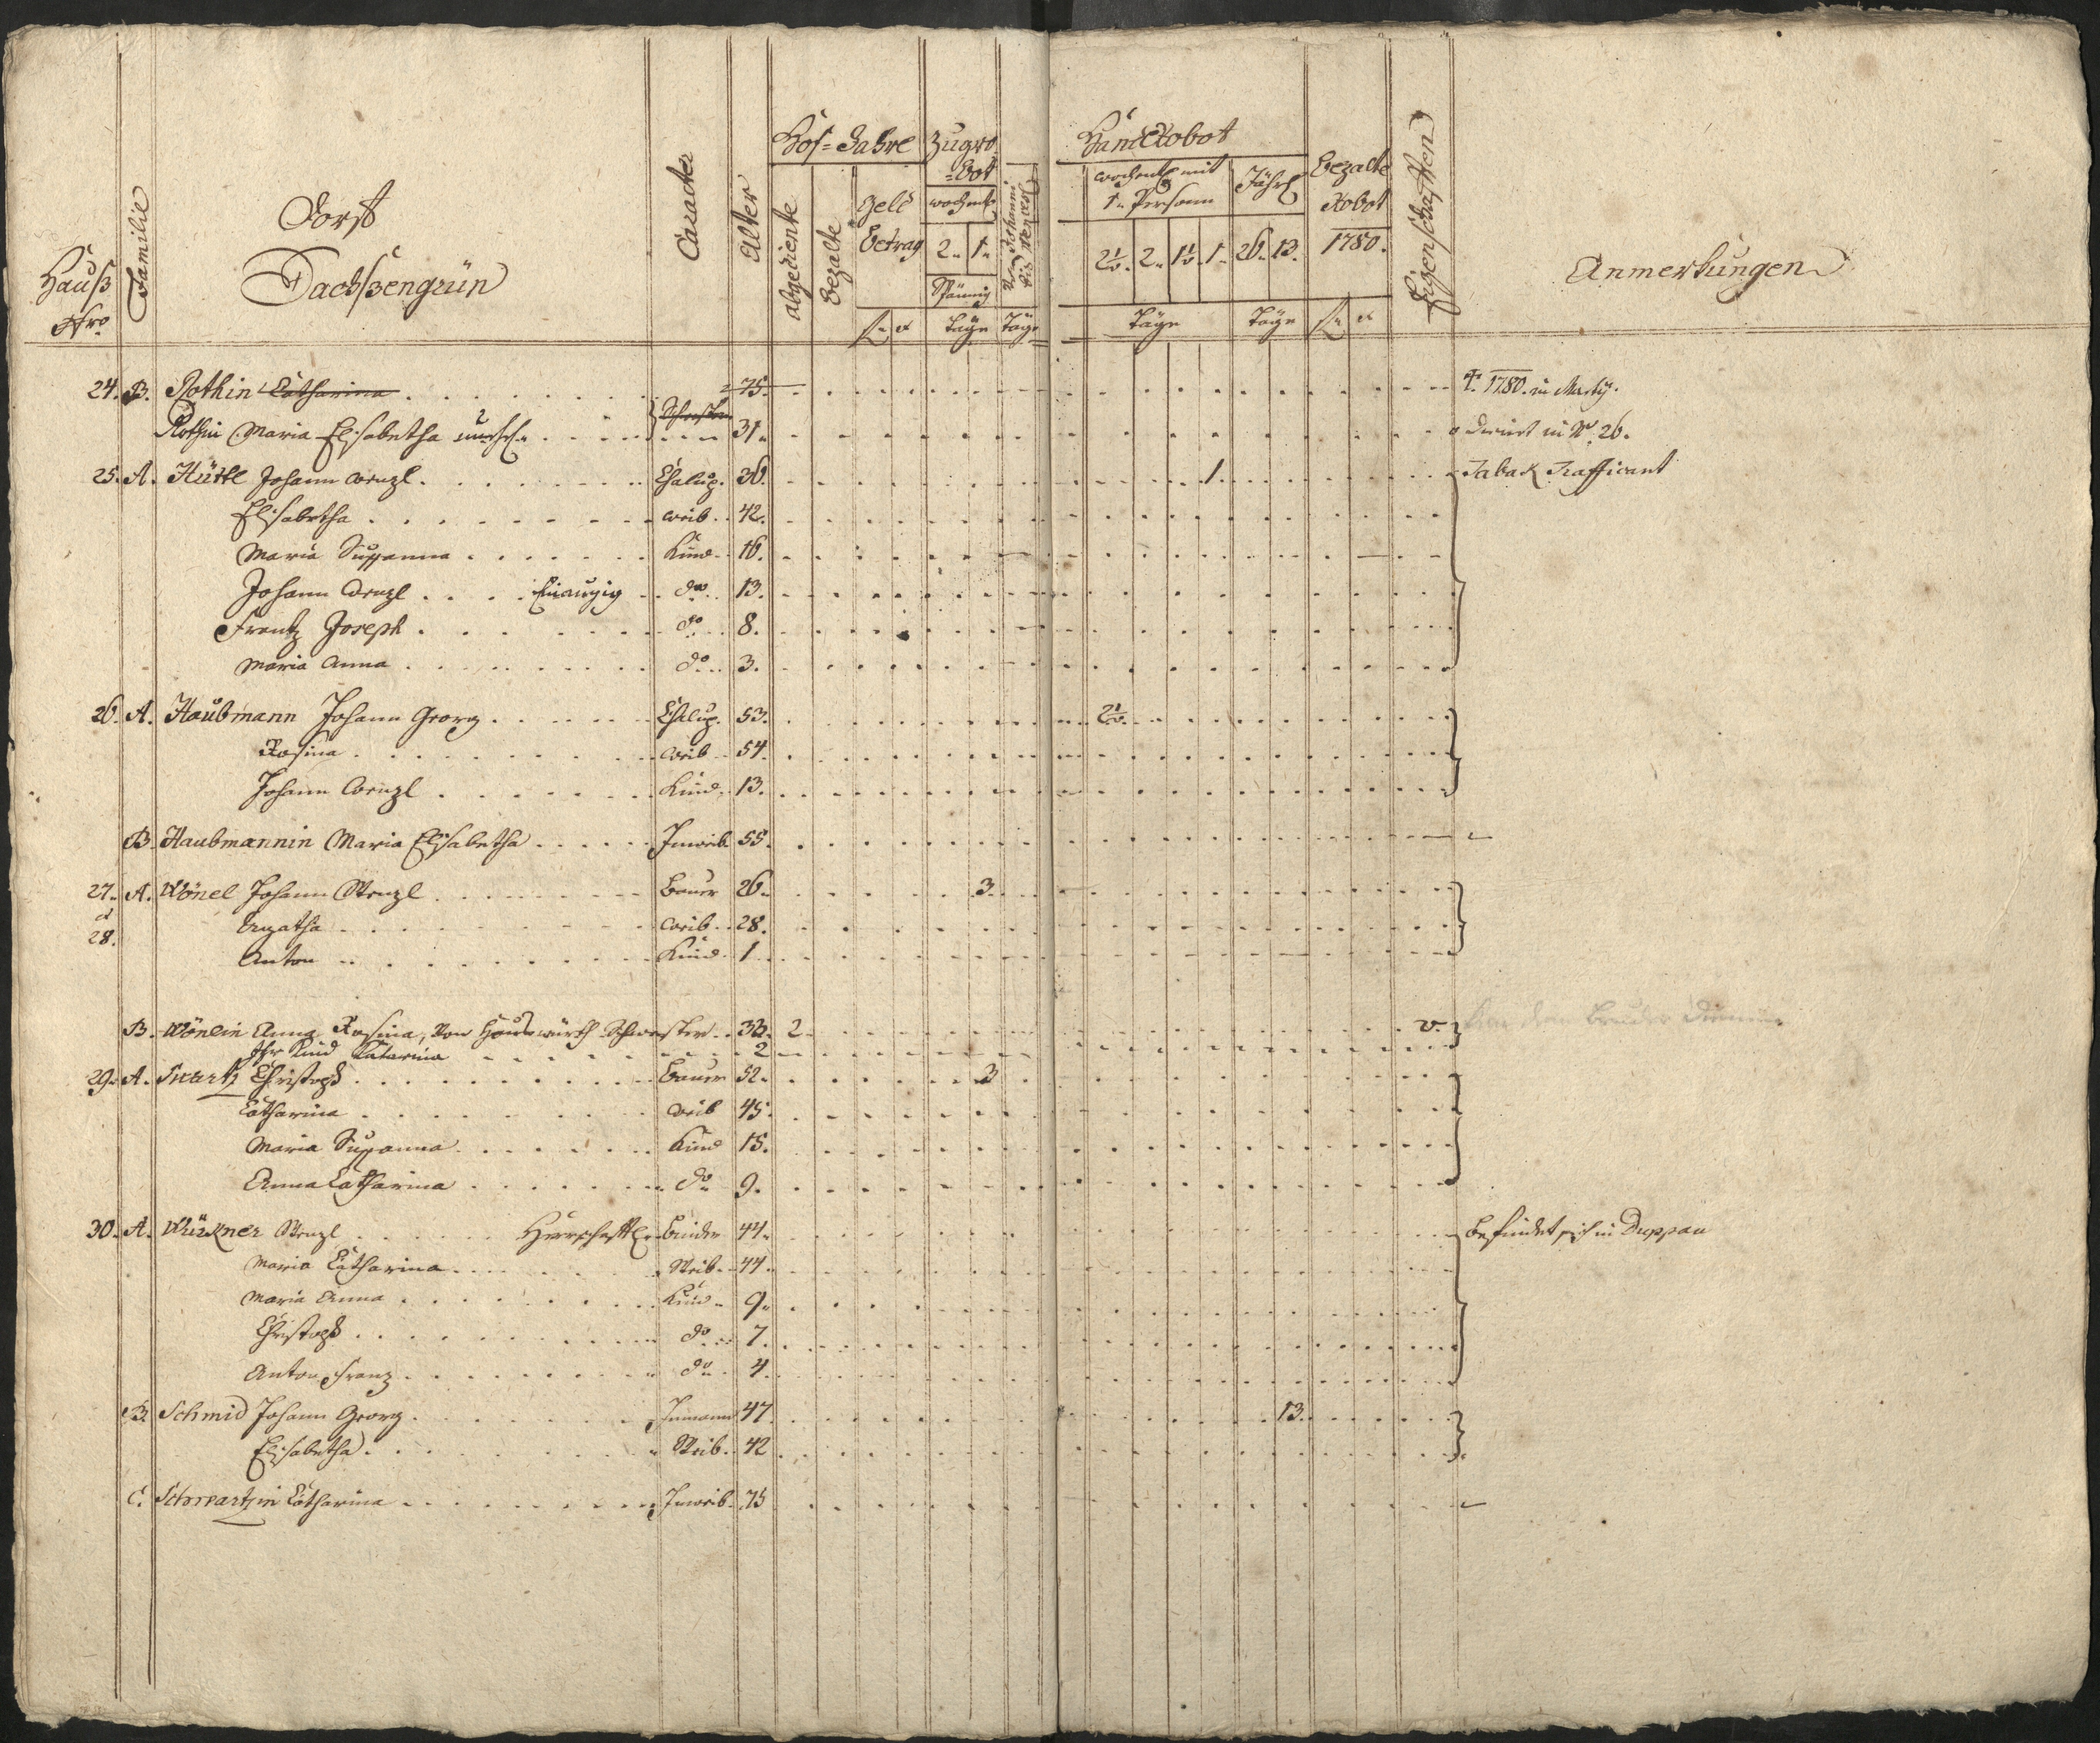 Hauß
Nro
Familie
Dorff
Dachßengrün
Caracter
Alter
Hof-Jahre
abgediente
bezalte
geld
betrag
fl x
Zugro
=bot
wochentl
2. 1.
Spännig
Täge
Von Johanni
bis Wenzesl
Täge
Handrobot
wochentl mit
1. Persohn
2½. 2. 1½. 1.
Täge
Jährl
26. 13.
Täge
bezalte
Robot
1780.
fl x
Eigenschafften
Anmerkungen
24. B. Rothin Catharina 75. †. 1780. in Marty.
Rothin Maria Elisabetha Schwester 31. dienet in No. 26.
25. A. Hüttl Johann Wenzl Chalup. 36. 1. Taback Trafficant
Elisabetha Weib 42.
Maria Susanna Kind 16.
Johann Wenzl Einaugig do 13.
Frantz Joseph do 8.
Maria Anna do 3.
26. A. Haubmann Johann Georg Chalup. 53. 2½.
Rosina Weib 54.
Johann Wenzl Kind 13.
B. Haubmannin Maria Elisabetha Inweib 55.
27. A. Wönel Johann Wenzl Bauer 26. 3.
et
28. Agatha Weib 28.
Anton Kind 1
B. Wönlin Anna Rosina, Von Hauswürth Schwester 33. 2 v.
Ihr Kind Katarina 2
29. A. Swartz Christoph Bauer 52. 3
Catharina Weib 45.
Maria Susanna Kind 15.
Anna Catharina do 9.
30. A. Wückner Wenzl Herrschaftl. binder 44. befindet sich in Duppau
Maria Catharina Weib 44.
Maria Anna Kind 9.
Christoph do 7.
Anton Franz do 4.
B. Schmid Johann Georg Inmann 47. 13.
Elisabetha Weib 42
C. Schwartzin Catharina Inweib 75